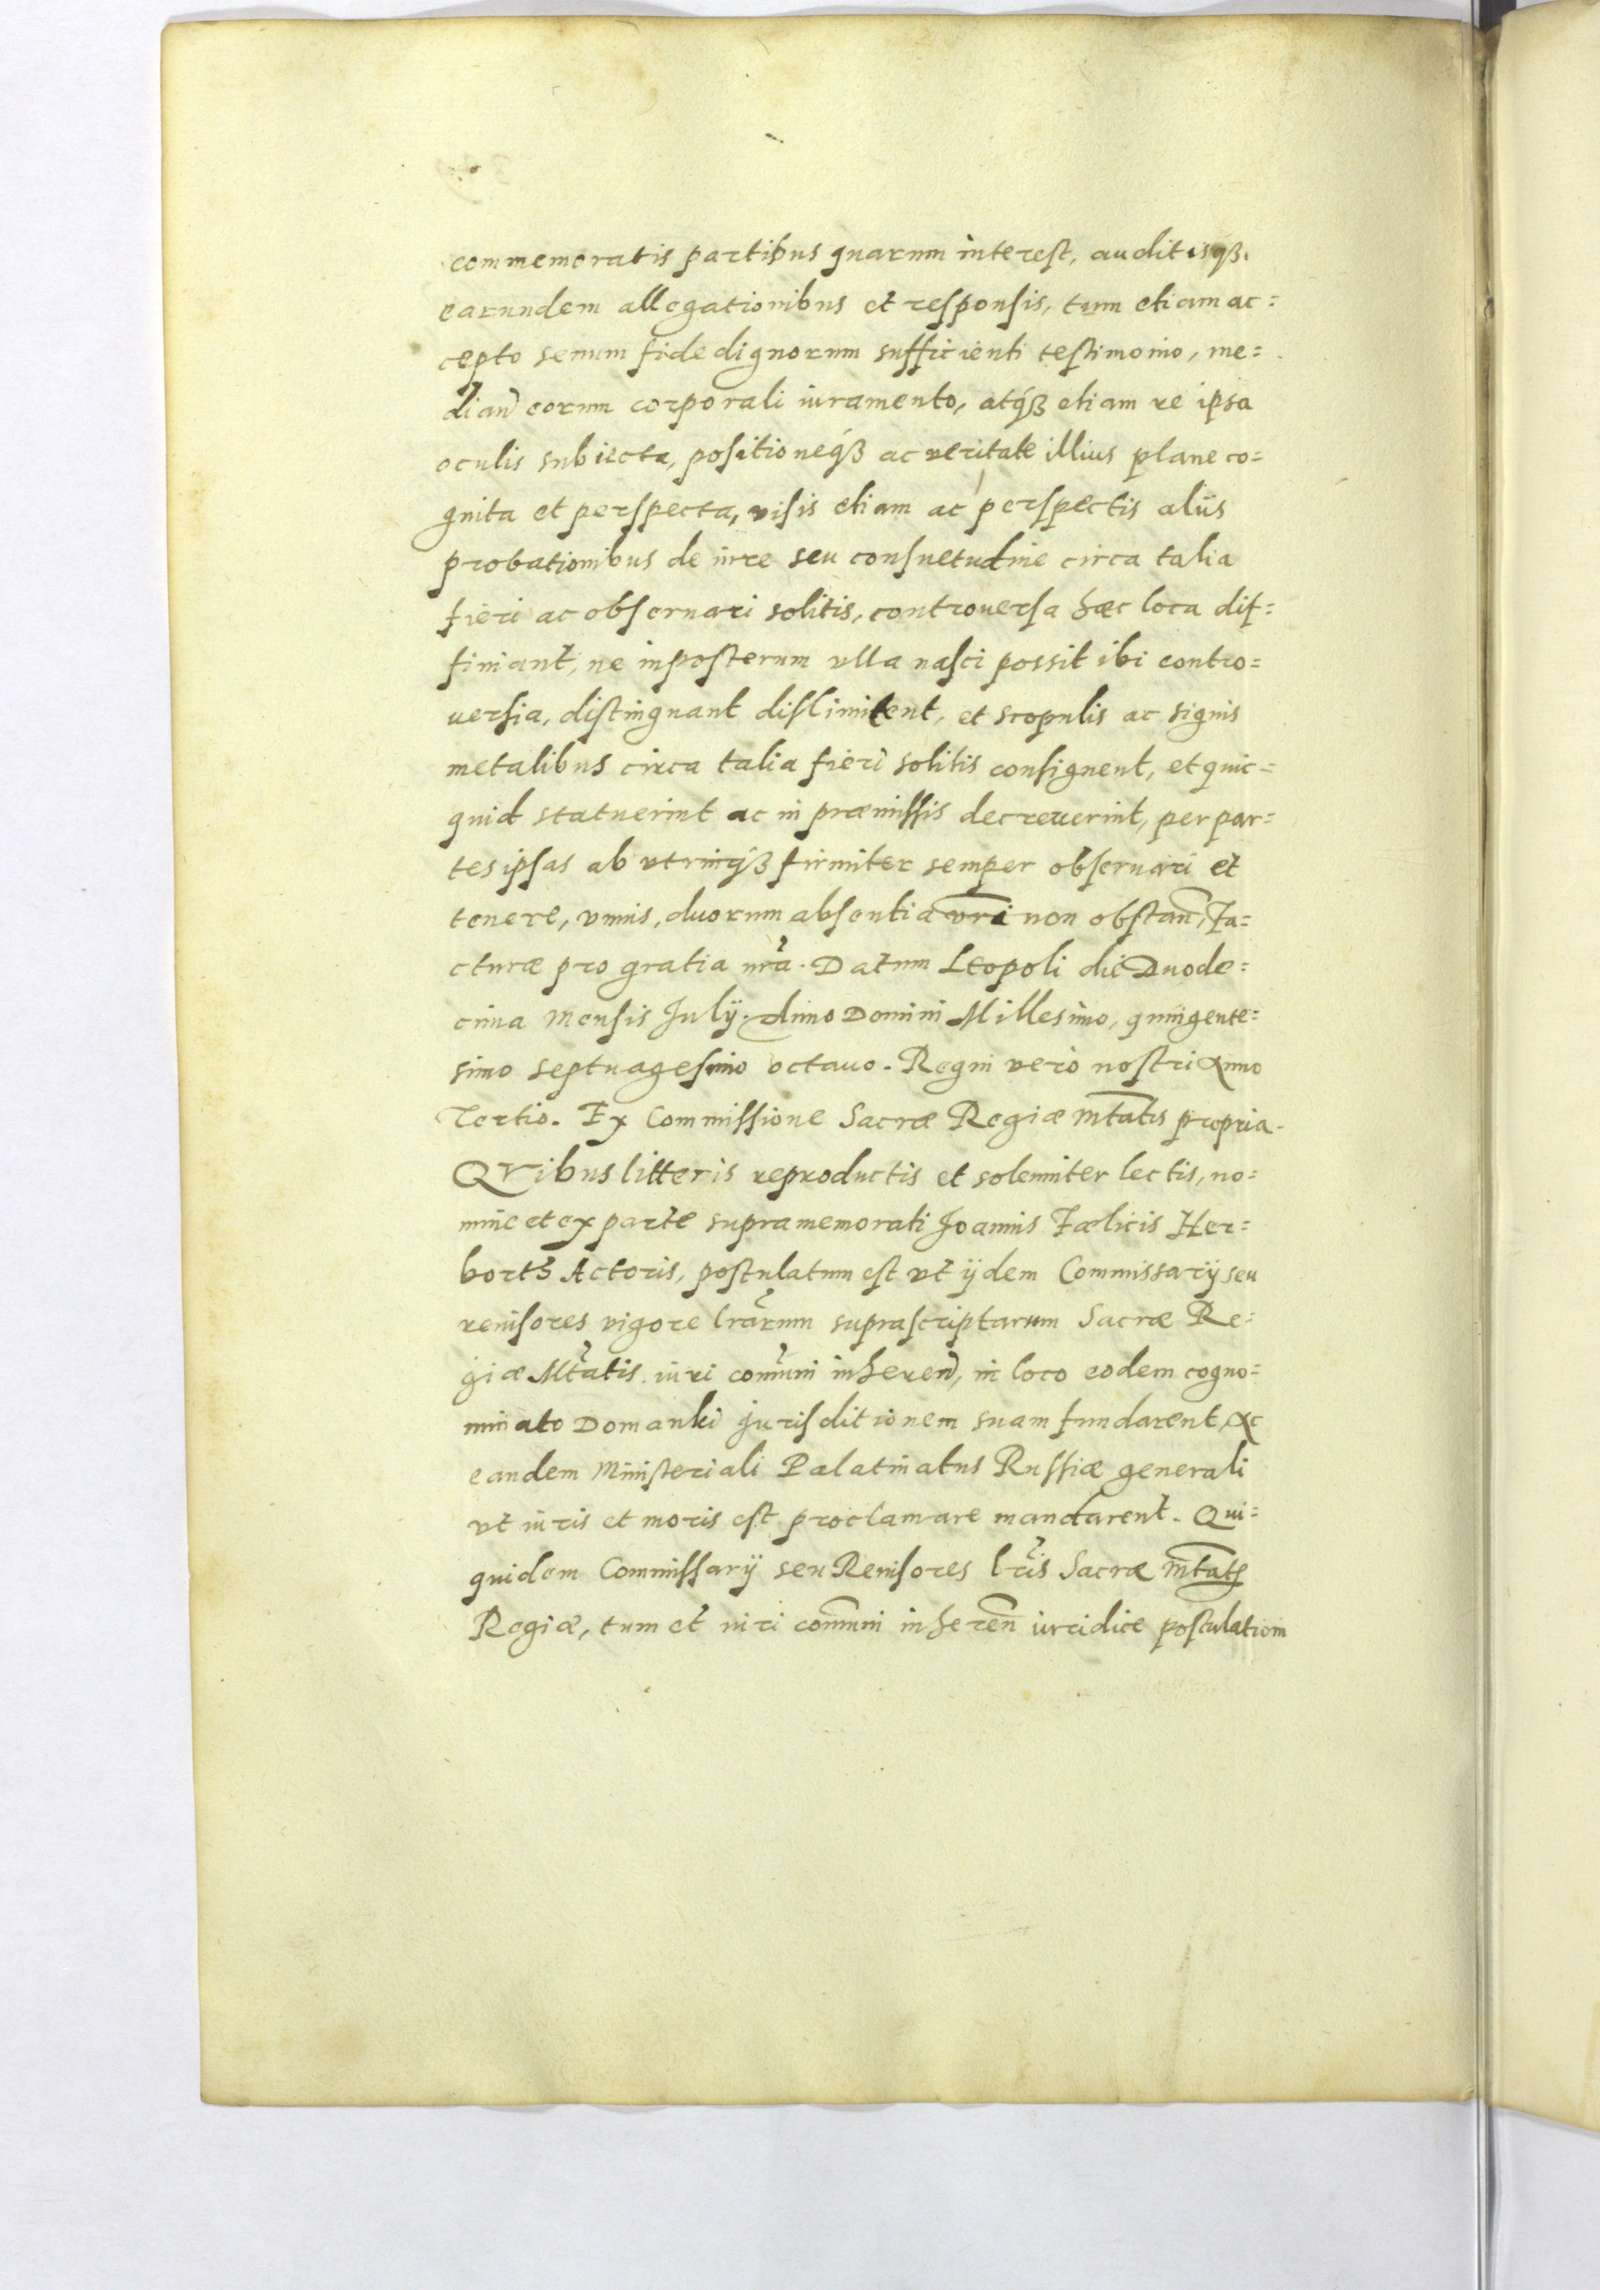 commemoratis partibus quarum interest, auditisq́ꝫ
earundem allegationibus et responsis, tum etiam ac=
cepto senum fide dignorum sufficienti testimonio, me=
dian̄ eorum corporali iuramento, atq́ꝫ etiam re ipsa
oculis subiecta, positioneq́ꝫ ac veritate illius plane co=
gnita et perspecta, visis etiam ac perspectis aliis
probationibus de iure seu consuetudine circa talia
fieri ac obseruari solitis, controuersa hæc loca dif=
finiant, ne inposterum vlla nasci possit ibi contro=
uersia, distinguant dislimitent, et scopulis ac signis
metalibus circa talia fieri solitis consignent, et quic=
quid statuerint ac in præmissis decreuerint, per par=
tes ipsas ab vtrinq́ꝫ firmiter semper obseruari et
tenere, vnius, duorum absentia vrī non obstan̄, Fa=
cturæ pro gratia nr̄a. Datum Leopoli die Duode=
cima Mensis July. Anno Domini Millesimo, quingente=
simo septuagesimo octauo. Regni vero nostri Anno
Tertio. Ex Commissione Sacræ Regiæ Mt̄atis propria.
QVibus litteris reproductis et solenniter lectis, no=
mine et ex parte supramemorati Joannis Fælicis Her=
borth Actoris, postulatum est vt ijdem Commissarij seu
reuisores vigore lr̄arum suprascriptarum Sacræ Re=
giæ Mt̄atis iuri com̄uni inheren̄, in loco eodem cogno=
minato Domanki Jurisditionem suam fundarent, Ac
eandem Ministeriali Palatinatus Russiæ generali
vt iuris et moris est proclamare mandarent. Qui=
quidem Commissarij seu Reuisores lr̄is Sacræ Mt̄atis
Regiæ, tum et iuri com̄uni inheren̄ iuridice postulationi